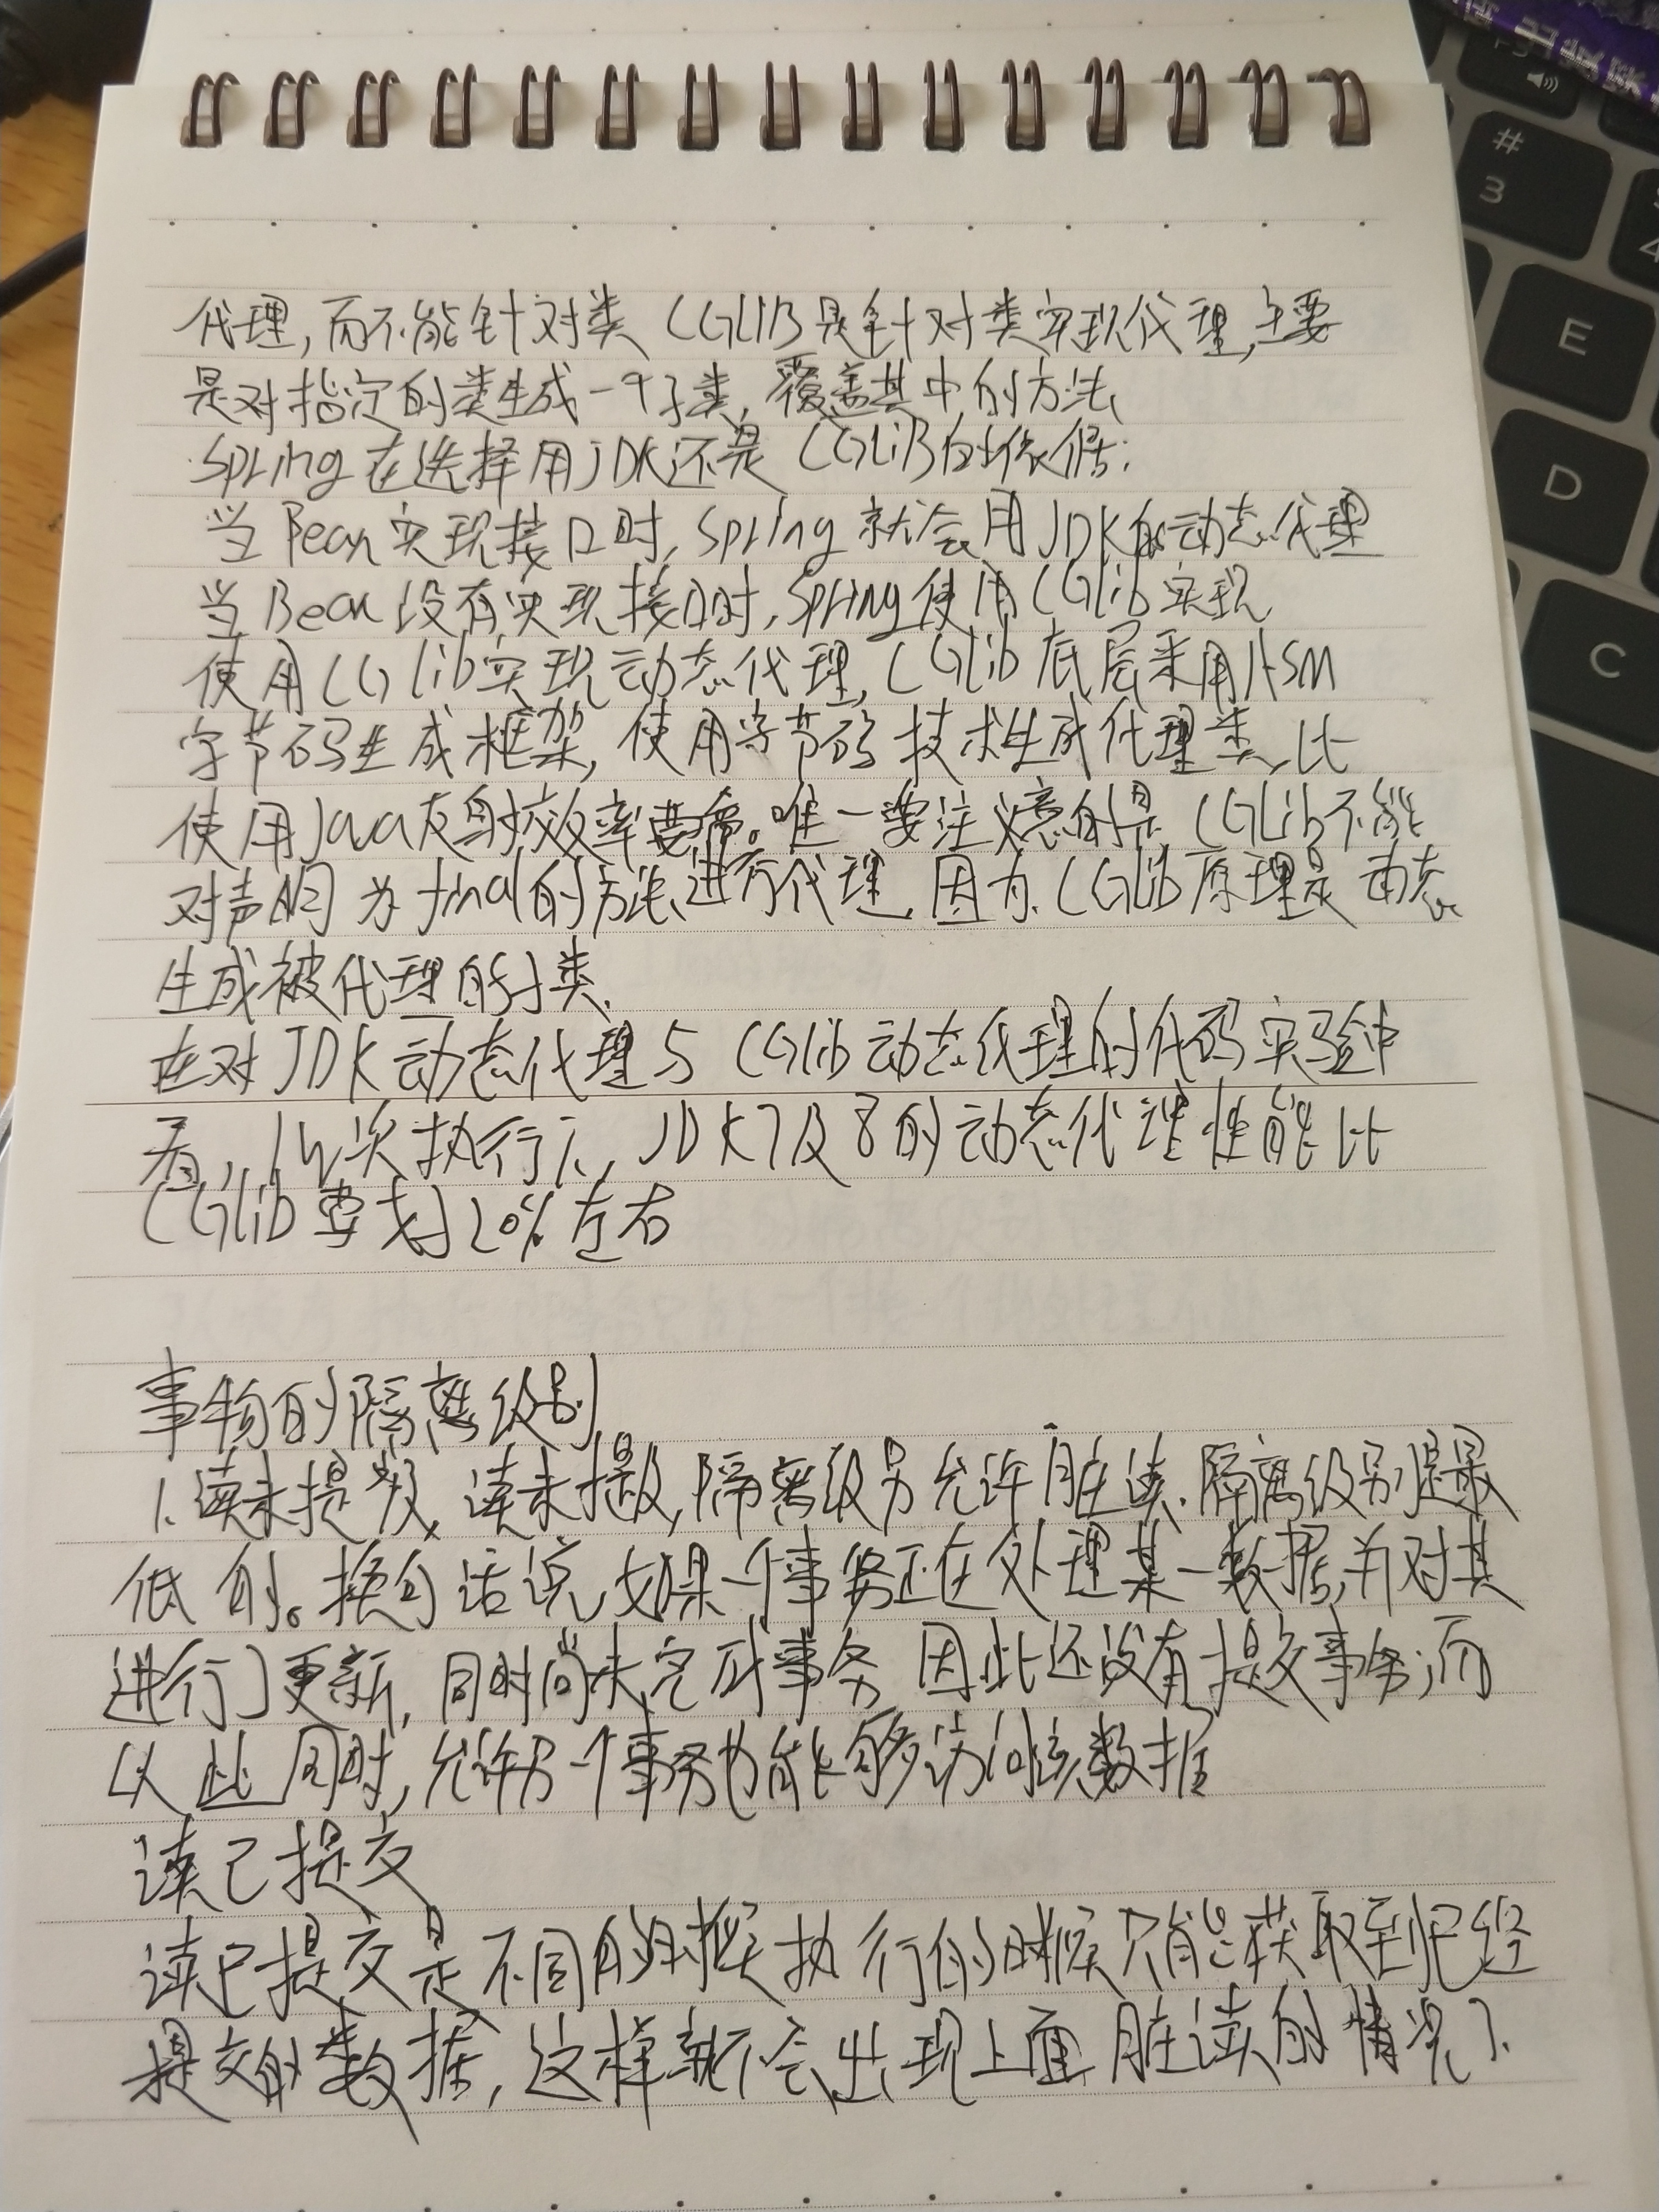 代理,而不能针对类 CGLIB是针对类实现代理,主要
是对指定的类生成一个子类,覆盖其中的方法
Spring在选择用JDK还是 CGLiB的依据:
当Bean实现接口时,Spring就会用JDK的动态代理
当Bean没有实现接口时,Spring使用CGlib实现
使用CGlib实现动态代理,CGlib底层采用ASM
字节码生成框架,使用字节码技术生成代理类,比
使用Java反射效率要高。唯一要注意的是,CGLib不能
对声明为final的方法进行代理,因为CGlib原理是动态
生成被代理的子类.
在对JDK动态代理与CGlib动态代理的代码实验中
看,1W次执行下,JDK7及8的动态代理性能比
CGlib要好20%左右
事物的隔离级别
1.读未提交,读未提及,隔离级另允许脏读.隔离级别是最
低的。换句话说,如果一个事务还在处理某一数据,并对其
进行了更新,同时尚未完成事务 因此还没有提交事务;而
以此同时,允许另一个事务也能够访问该数据
读已提交
读已提交是不同的时候执行的时候只能获取到已经
提交的数据,这样就不会出现上面脏读的情况了.
#
3
E
D
C